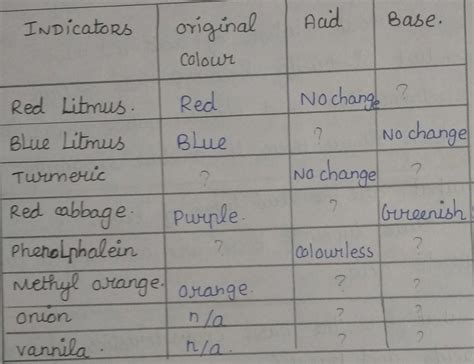 INDicatoRs original Colour Acid Base.
Red Litmus. Red No change ?
BLue Litmus BLue ? No change
Turmeric ? No change ?
Red cabbage. Purple. ? Greenish
Phenolphalein ? Colourless ?
Methyl orange. orange. ? ?
onion n/a ? ?
vannila. n/a. ? ?